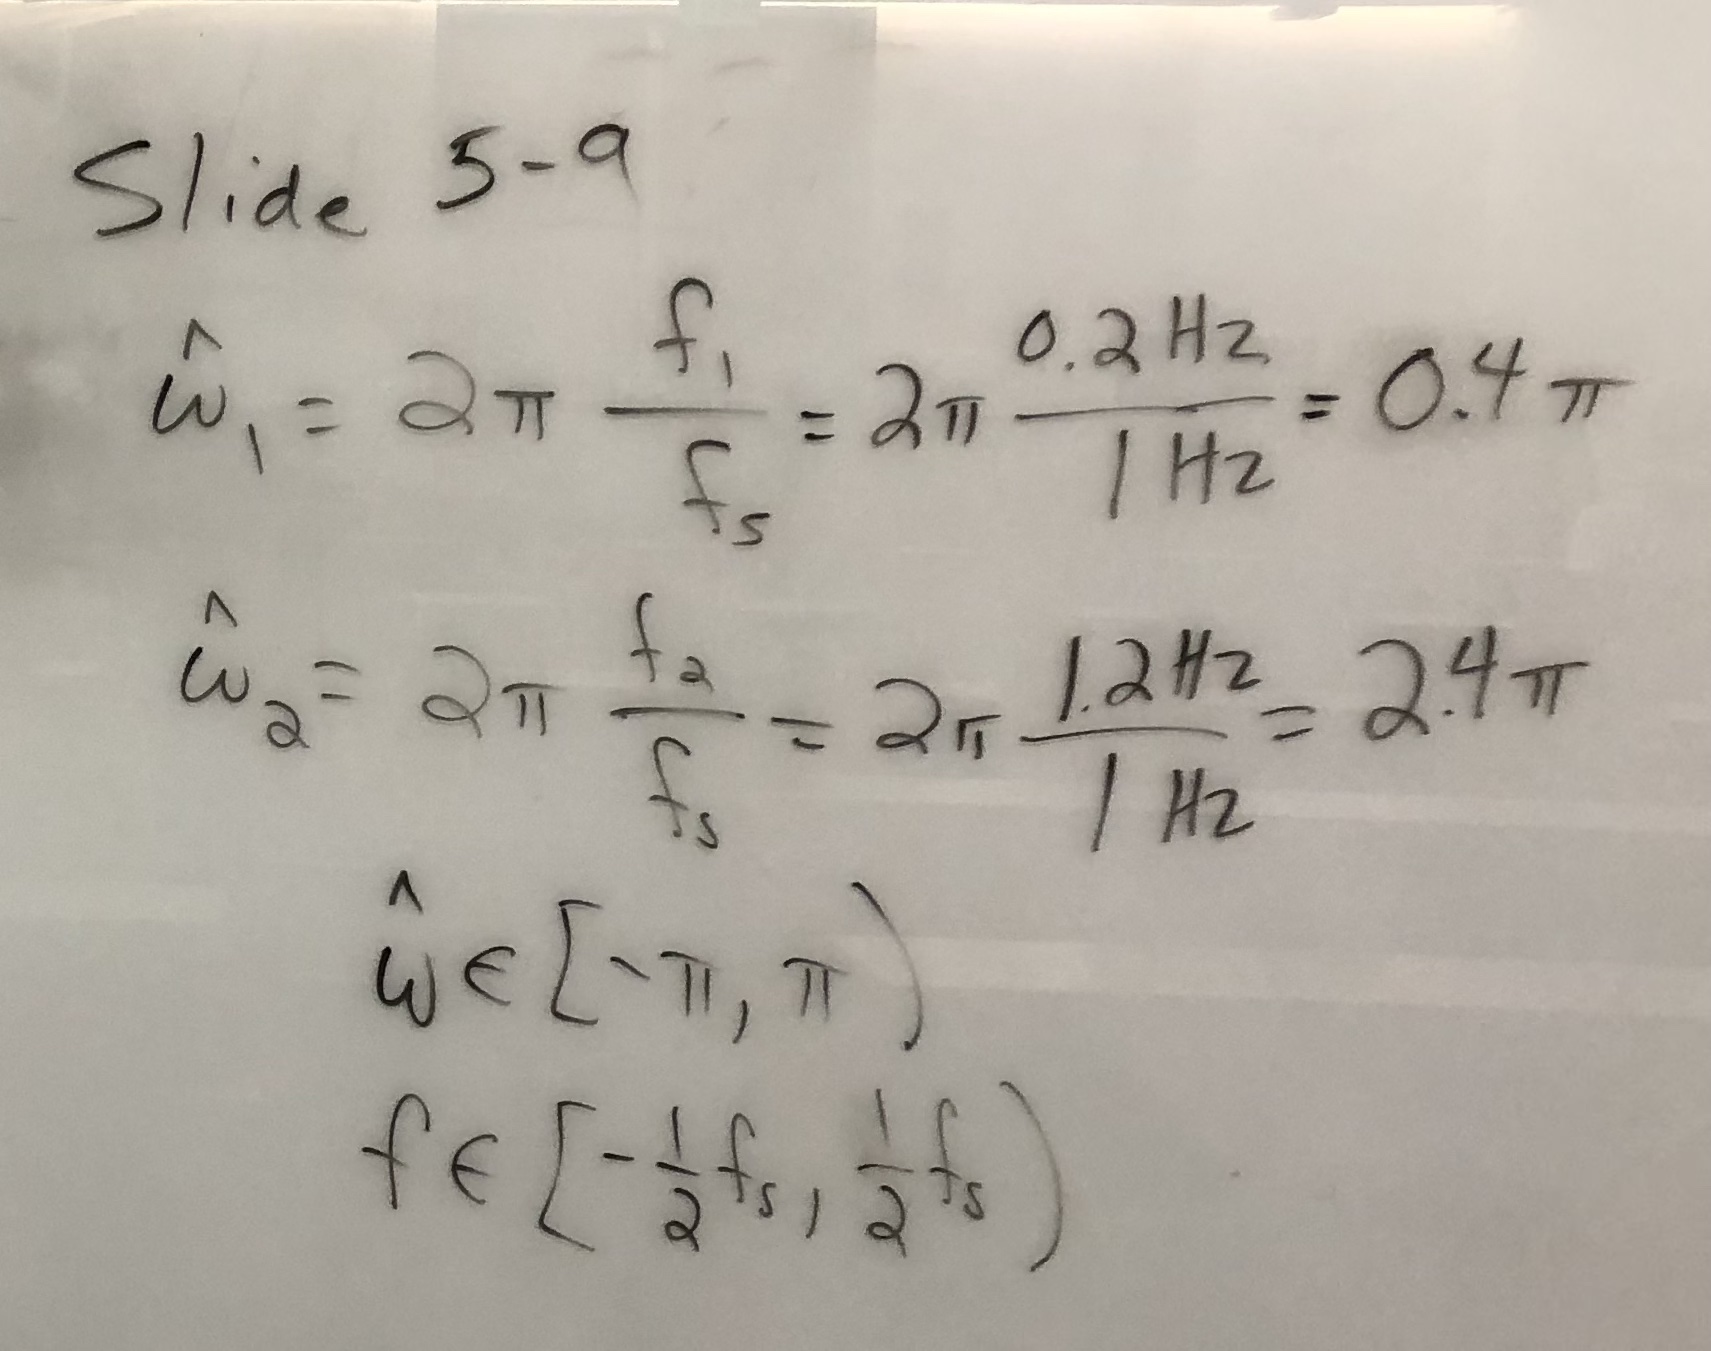 Slide 5-9
ω̂₁ = 2π f₁/fₛ = 2π 0.2 Hz/1 Hz = 0.4 π
ω̂₂ = 2π f₂/fₛ = 2π 1.2 Hz/1 Hz = 2.4 π
ω̂ ∈ [-π, π)
f ∈ [-1/2 fₛ, 1/2 fₛ)